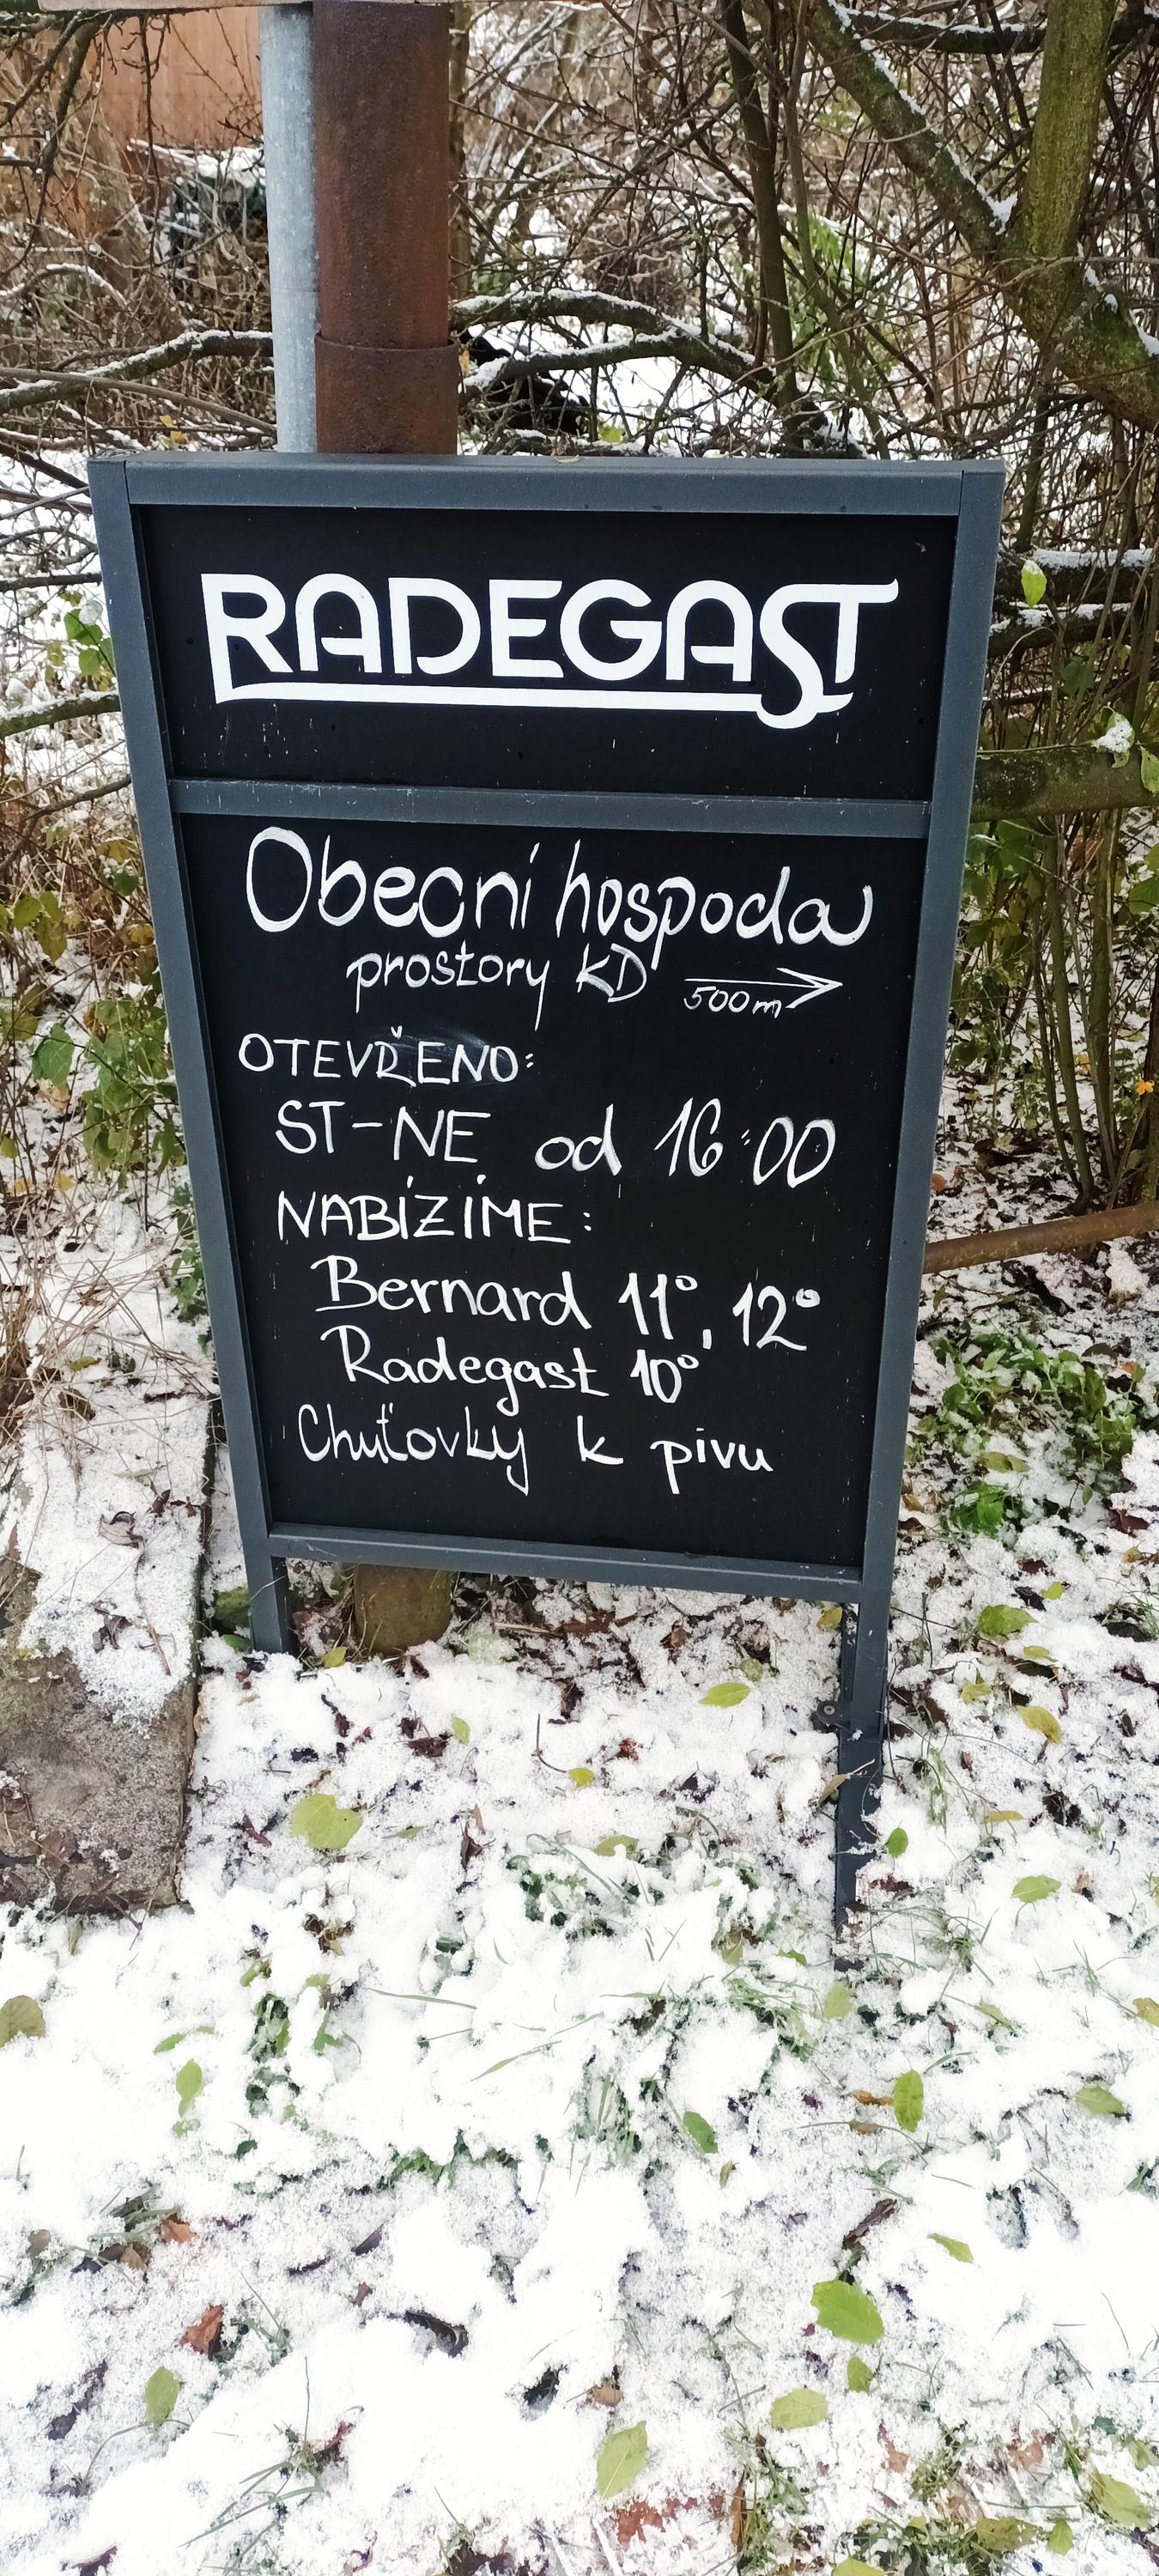 RADEGAST
Obecní hospoda
prostory KD
500m
OTEVŘENO:
ST-NE od 16:00
NABÍZÍME:
Bernard 11°, 12°
Radegast 10°
Chuťovky k pivu